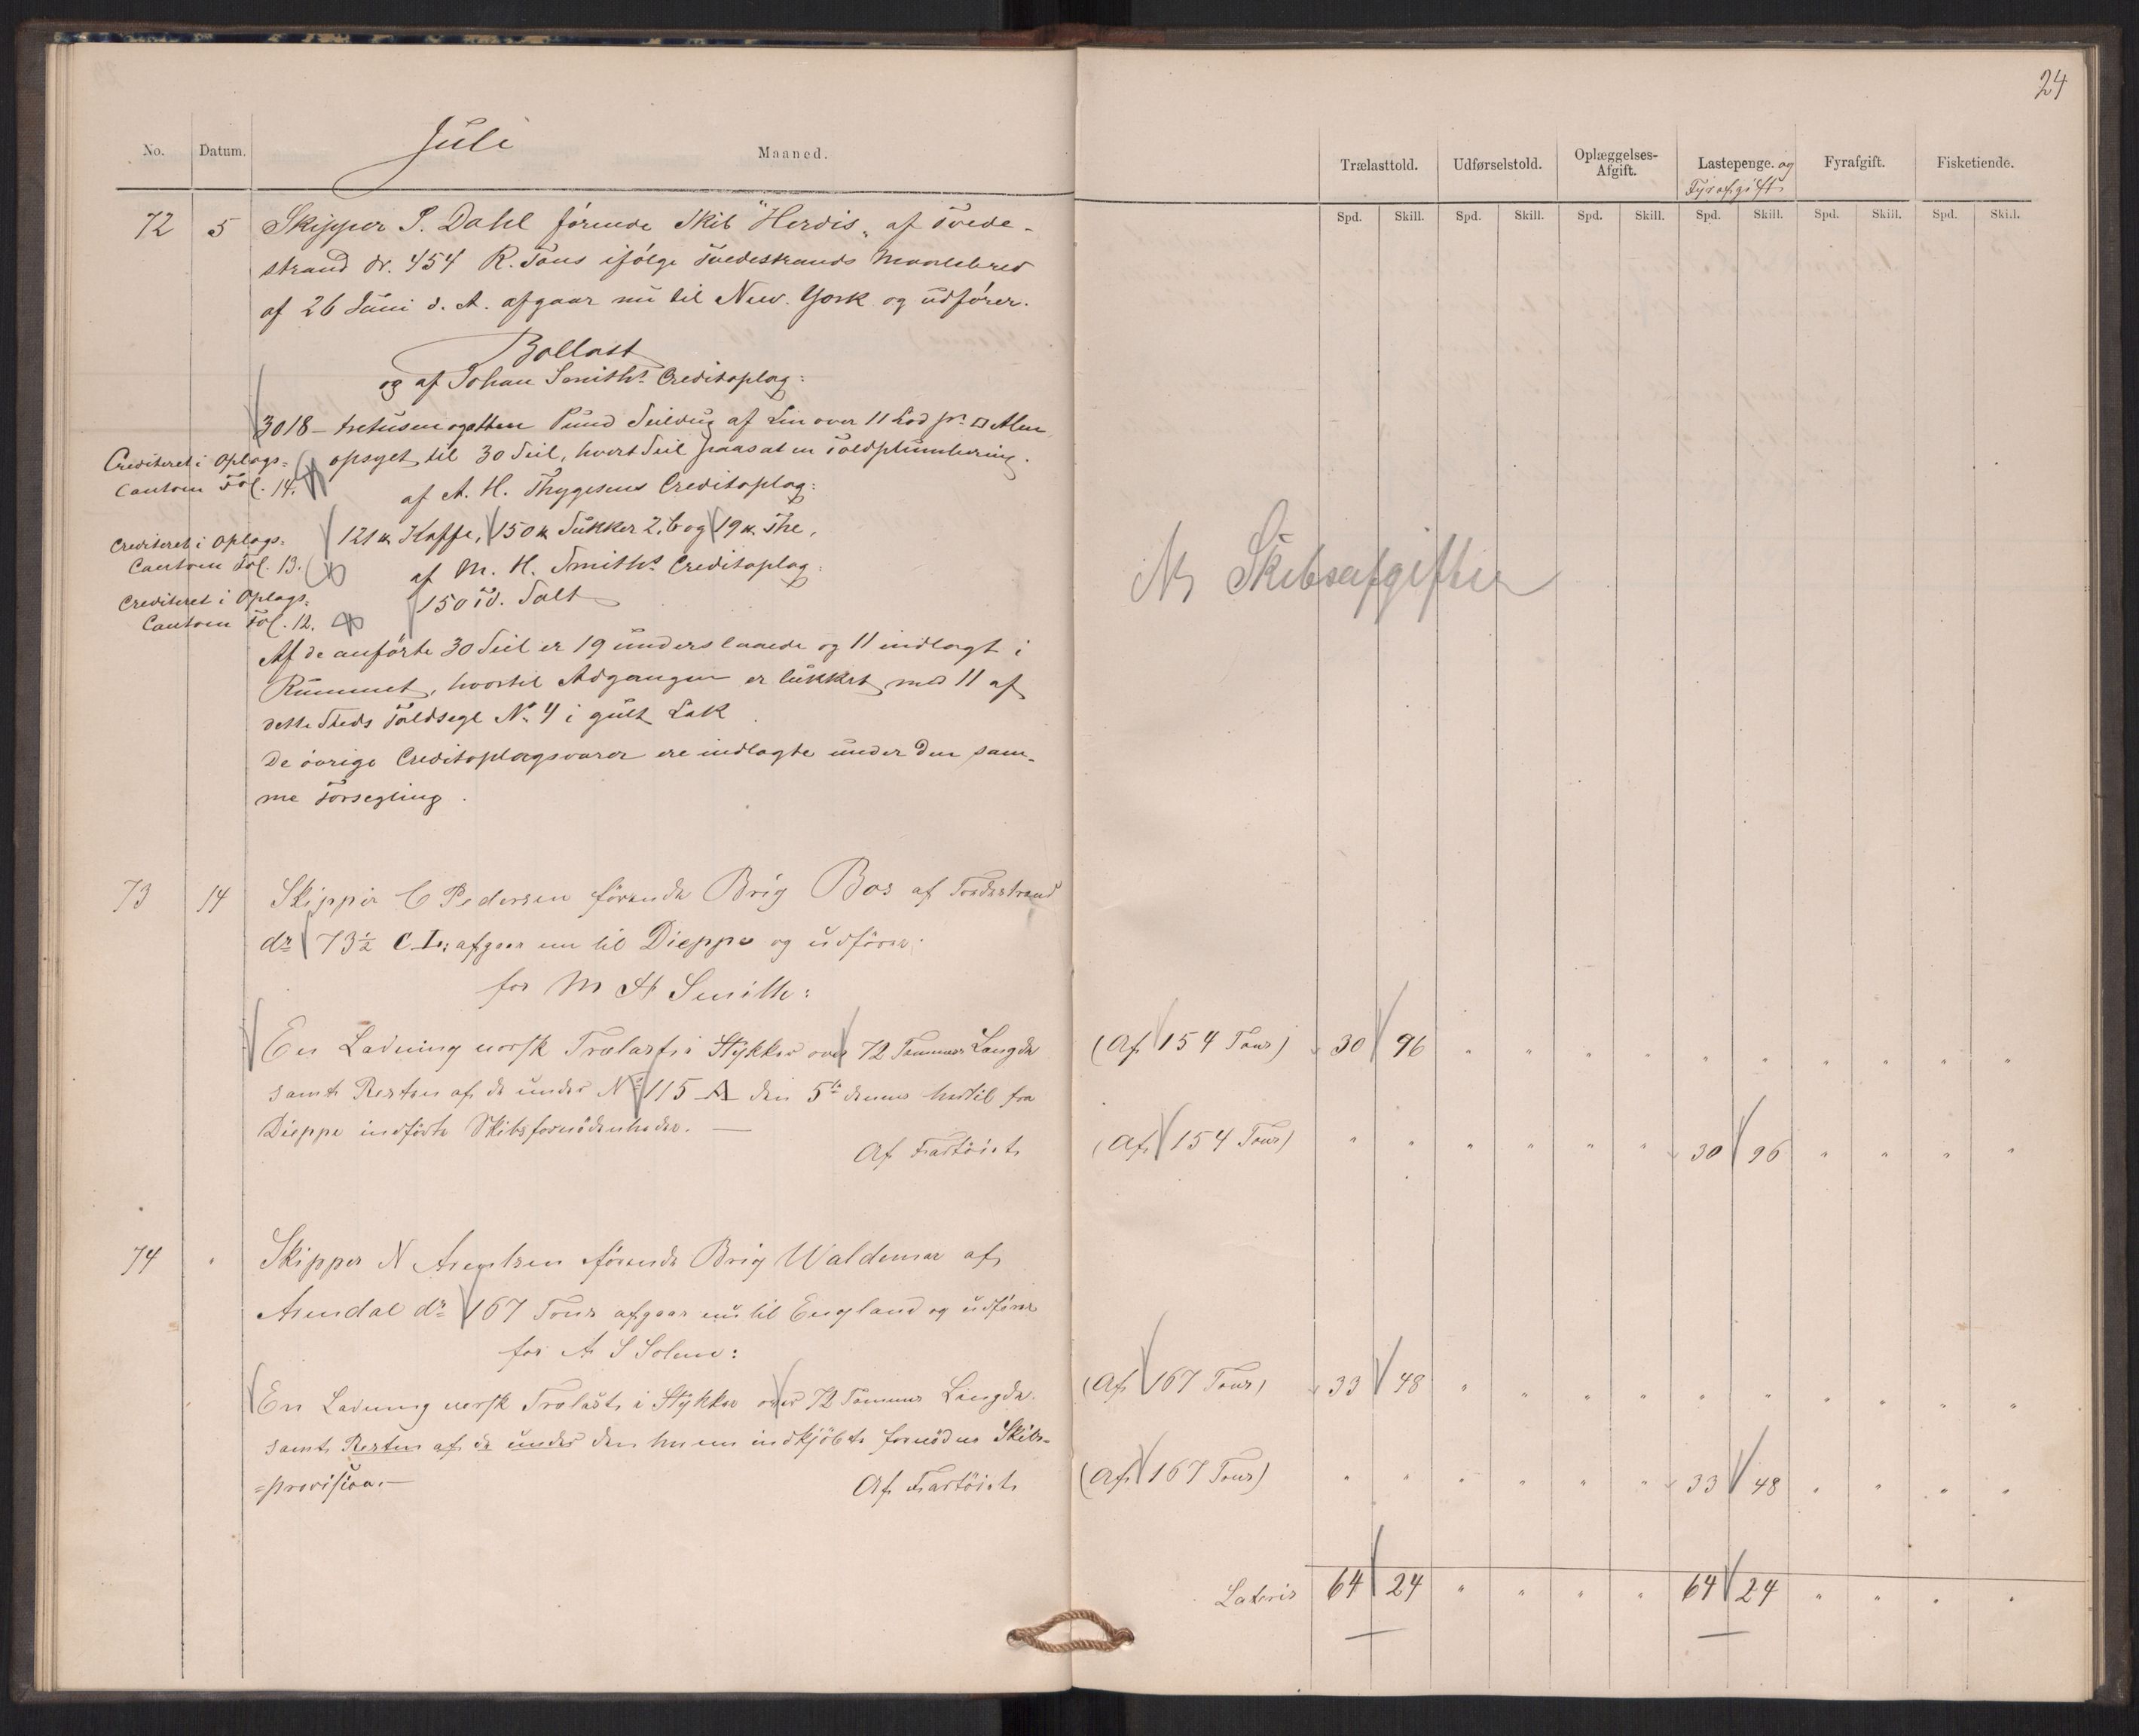 24
Juli
No. Datum. Maaned.
Trælasttold. Udførselstold. Oplæggelses-Afgift. Lastepenge. og Fyrafgift. Fyrafgift. Fisketiende.
Spd. Skill. Spd. Skill. Spd. Skill. Spd. Skill. Spd. Skill. Spd. Skill.
72 5 Skipper P. Dahl førende Skib "Herdis" af Tvede-
strand dr. 454 R. Tons ifølge Tvedestrands Maalebrev
af 26 Juni d. A. afgaar nu til New-York og udfører.
Ballast
og af Johan Smiths Creditoplag:
3018 - tretusen og atten Pund Seildug af Lin over 11 Lod pr. □ Alen,
Crediteret i Oplags- opsyet til 30 Seil, hvert Seil paasat en Toldplumbering.
Contoen Fol. 14.
af A. H. Thygesens Creditoplag:
Crediteret i Oplags- 121 ℔ Kaffe, 150 ℔ Sukker 2. C og 19 ℔ The,
Contoen Fol. 13.
af M. H. Smiths Creditoplag:
Crediteret i Oplags- 150 Td. Salt
Contoen Fol. 12.
Af de anførte 30 Seil er 19 underslaaede og 11 indlagt i
Rummet, hvortil Adgangen er lukket med 11 af
dette Steds Toldsegl No. 4 i gult Lak
De øvrige Creditoplagsvarer ere indlagte under den sam-
me Forsegling.
Skibsafgifter
73 14 Skipper C Pedersen førende Brig Bos af Tvedestrand
dr. 73½ C. L. afgaar nu til Dieppe og udfører:
for M H Smith:
En Ladning norsk Trælast i Stykker over 72 Tommers Længde (Af 154 Tons) 30 96 " " " " " " " " " "
samt Resten af de under No 115 A den 5te dennes hertil fra
Dieppe indførte Skibsfornødenheder. —
Af Fartøiet (Af 154 Tons) " " " " " " 30 96 " " " "
74 " Skipper N Arentsen førende Brig Waldemar af
Arendal dr. 167 Tons afgaar nu til England og udfører
for A S Solem:
En Ladning norsk Trælast i Stykker over 72 Tommers Længde (Af 167 Tons) 33 48 " " " " " " " " " "
samt Resten af de under den indkjøbte fornødne Skibs-
=provision. — Af Fartøiet (Af 167 Tons) " " " " " " 33 48 " " " "
Lateris 64 24 " " " " 64 24 " " " "